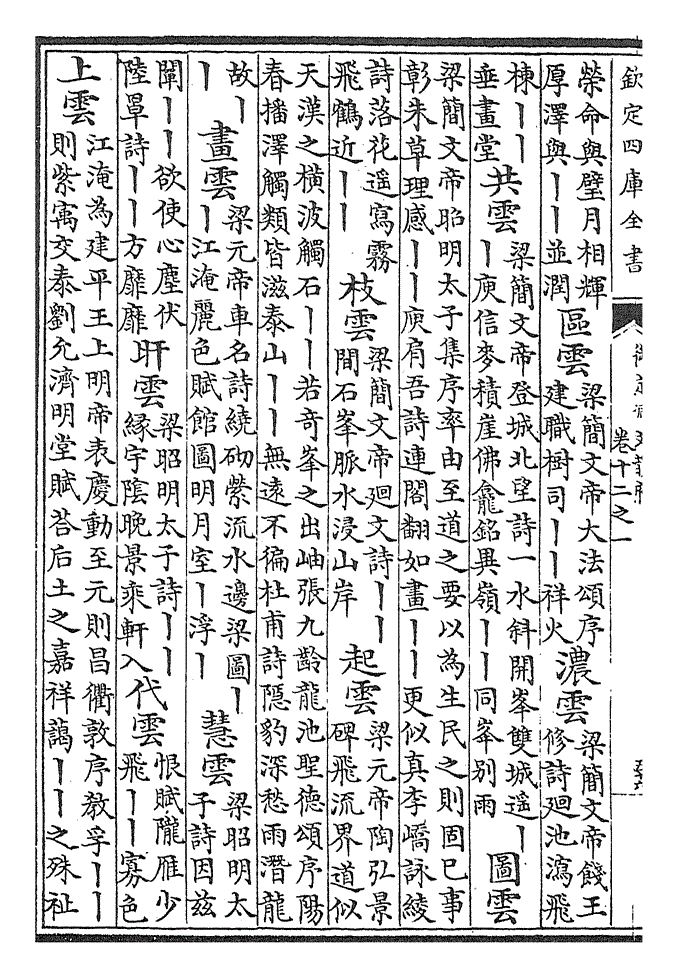 欽定四庫全書
卷十二之一
榮命與璧月相輝
厚澤與丨丨並潤
區雲
梁簡文帝大法頌序
建職樹司丨丨祥火
濃雲
梁簡文帝餞王
修詩廻池瀉飛
棟丨丨
垂畫堂
共雲
梁簡文帝登城北望詩一水斜開峯雙城遥丨
丨庾信麥積崖佛龕銘異嶺丨丨同峯别雨
圖雲
梁簡文帝昭明太子集序率由至道之要以為生民之則固已事
彰朱草理感丨丨庾肩吾詩連閣翻如畫丨丨更似真李嶠詠綾
詩落花遥寫霧
飛鶴近丨丨
枝雲
梁簡文帝廻文詩丨丨
間石峯脈水浸山岸
起雲
梁元帝陶弘景
碑飛流界道似
天漢之横波觸石丨丨若奇峯之出岫張九齡龍池聖德頌序陽
春播澤觸類皆滋泰山丨丨無遠不徧杜甫詩隱豹深愁雨潛龍
故丨
丨
畫雲
梁元帝車名詩繞砌縈流水邊梁圖丨
丨江淹麗色賦館圖明月室丨浮丨
慧雲
梁昭明太
子詩因兹
闡丨丨欲使心塵伏
陸罩詩丨丨方靡靡
旰雲
梁昭明太子詩丨丨
緣宇陰晚景乘軒入
代雲
恨賦隴雁少
飛丨丨寡色
上雲
江淹為建平王上明帝表慶動至元則昌衢敦序教孚丨丨
則紫寓交泰劉允濟明堂賦荅后土之嘉祥藹丨丨之殊祉